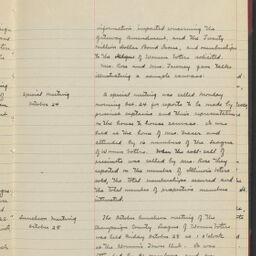 information imparted concerning the
Gateway Amendment, and the Twenty
million dollar Bond Issue, and memberships
to the League of Women Voters solicited.
Mrs. Ross and Mrs. gave talks
illustrating a sample canvass.
Special meeting
October 24
A special meeting was called Monday
morning Oct. 24 for reports to be made by
precinct captains and their representatives
in the house to house canvass. It was
held at the home of Mrs. and
attended by 12 members of the League
of Women Voters. When the roll call of
precincts was called by Mrs. Ross they
reported on the number of Illinois Voters
sold, the total memberships secured and
the total number of prospective members
intimated.
Luncheon Meeting
October 28
The October luncheon meeting of the
Champaign County League of Women Voters
was held Friday October 28 at 1 o'clock
at the Women's Town Club. It was
attended by members and